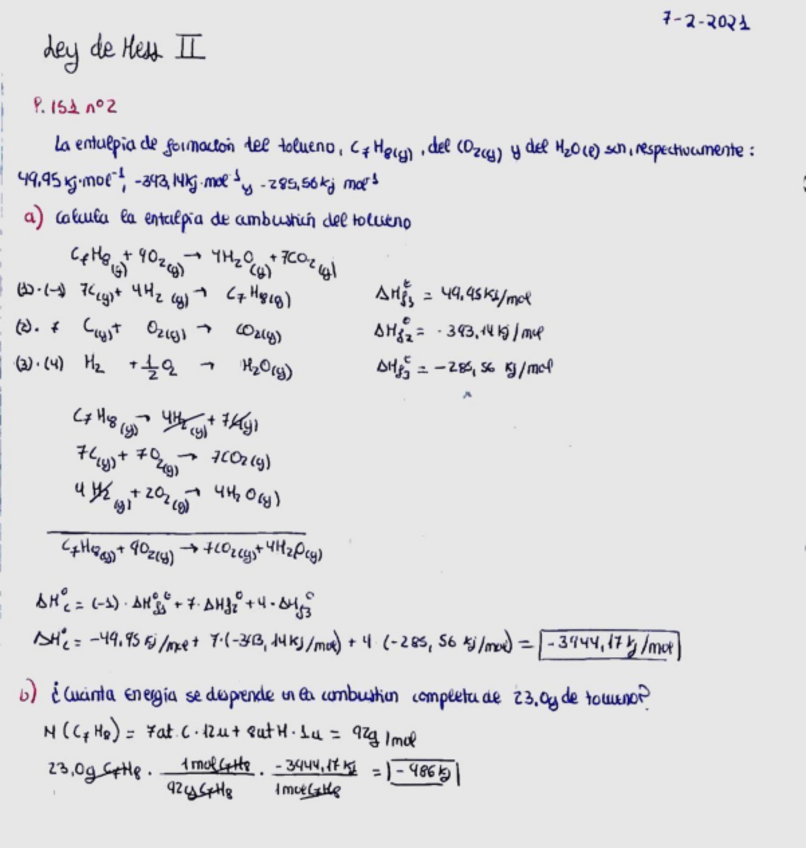 7-2-2021
Ley de Hess II
P. 151 nº2
La entalpía de formación del tolueno, C7H8(g), del CO2(g) y del H2O(l) son, respectivamente:
49,95 kj·mol-1, -393,14 kj·mol-1 y -285,56 kj mol-1
a) Calcula la entalpía de combustión del tolueno
C7H8(g) + 9O2(g) → 4H2O(g) + 7CO2(g)
(1)·(-1) 7C(g) + 4H2(g) → C7H8(g) ΔHºf1 = 49,95 KJ/mol
(2)·7 C(g) + O2(g) → CO2(g) ΔHºf2 = -393,14 kj/mol
(3)·(4) H2 + 1/2 O2 → H2O(g) ΔHºf3 = -285,56 kj/mol
C7H8(g) → 4H2(g) + 7C(g)
7C(g) + 7O2(g) → 7CO2(g)
4H2(g) + 2O2(g) → 4H2O(g)
C7H8(g) + 9O2(g) → 7CO2(g) + 4H2O(g)
ΔHºc = (-1)·ΔHºf1 + 7·ΔHºf2 + 4·ΔHºf3
ΔHºc = -49,95 kj/mol + 7·(-393,14 KJ/mol) + 4(-285,56 kj/mol) = -3944,17 kj/mol
b) ¿Cuánta energía se desprende en la combustión completa de 23,0g de tolueno?
M(C7H8) = 7at.C·12u + 8at H·1u = 92g/mol
23,0g C7H8 · 1mol C7H8 / 92g C7H8 · -3944,17 kj / 1mol C7H8 = -986 kj